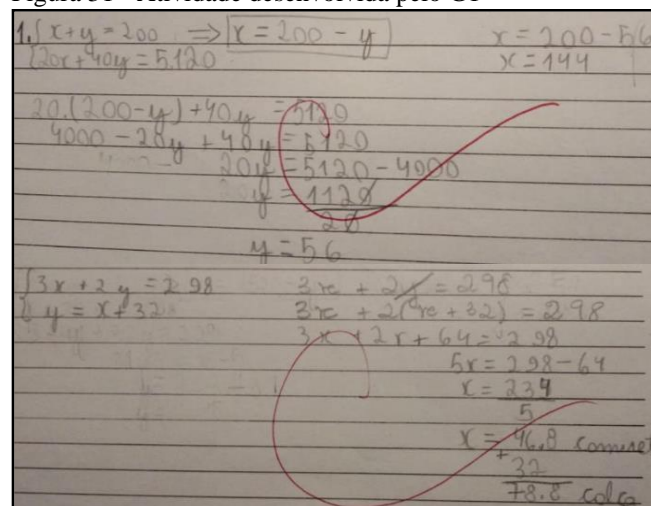 Figura 31 - Atividade desenvolvida pelo G1
1. { x + y = 200 ⇒ x = 200 - y
{ 20x + 40y = 5.120
x = 200 - 56
x = 144
20.(200-y) + 40y = 5120
4000 - 20y + 40y = 5120
20y = 5120 - 4000
y = 1120
20
y = 56
{ 3x + 2y = 298
{ y = x + 32
3x + 2y = 298
3x + 2(x + 32) = 298
3x + 2x + 64 = 298
5x = 298 - 64
x = 234
5
x = 46,8
+ 32
78.8 calça